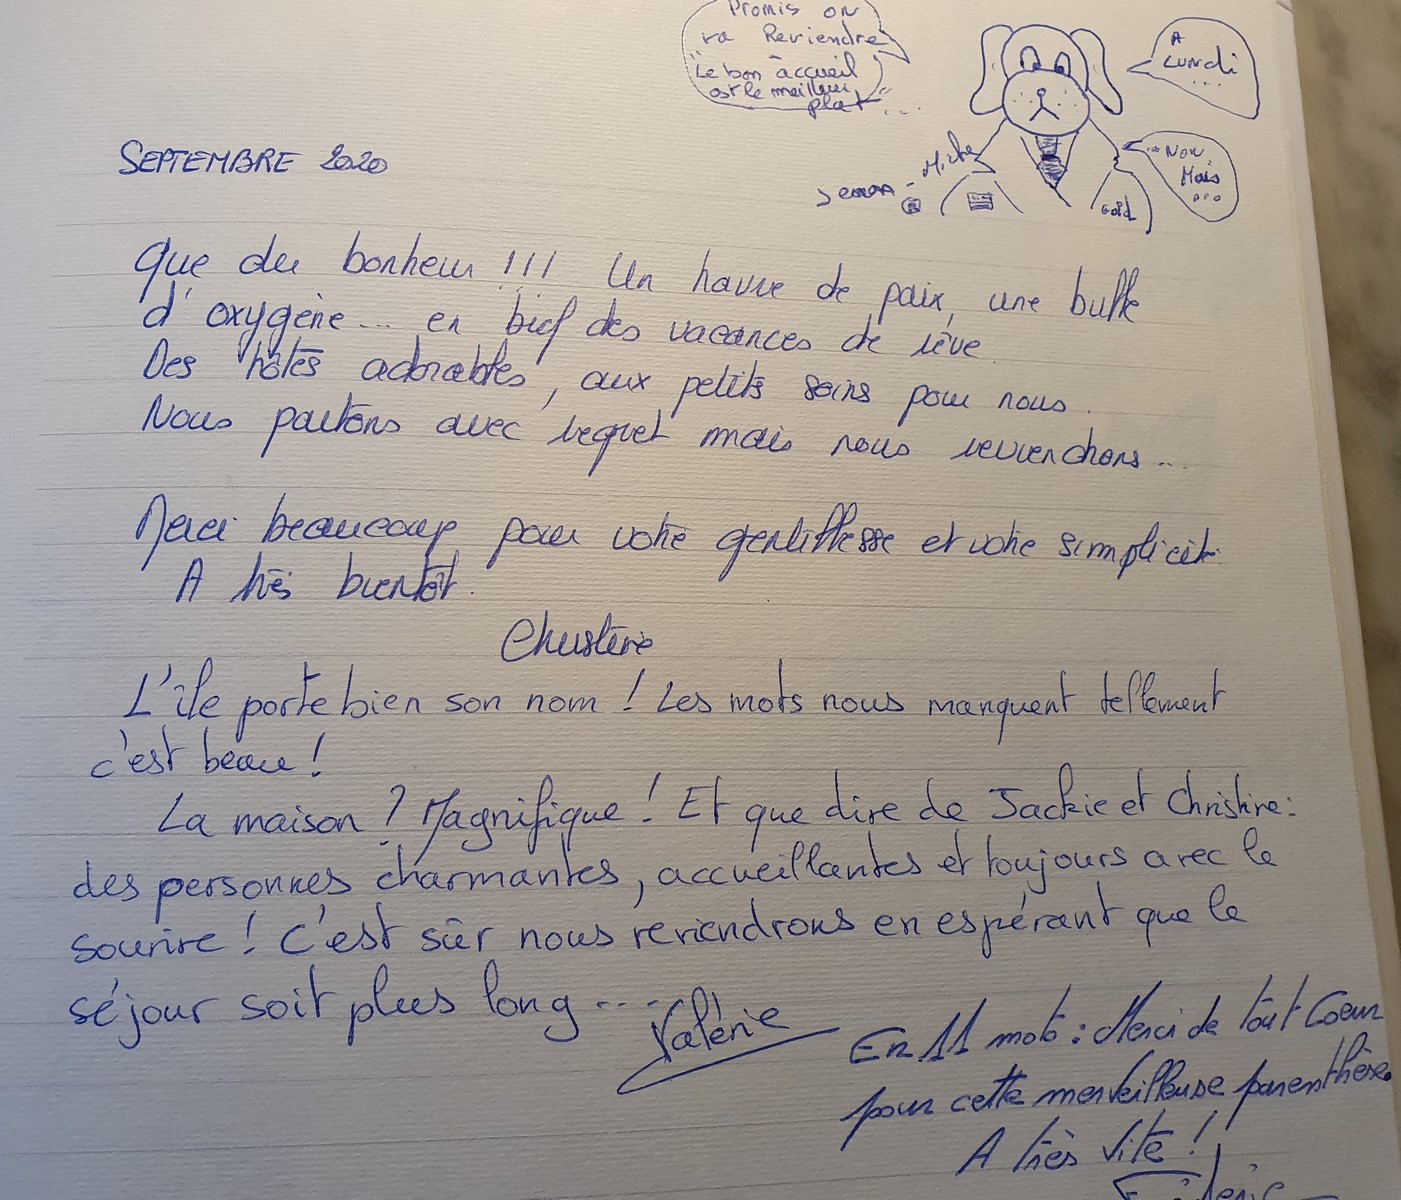 Promis on
va Reviendre
"Le bon accueil
est le meilleur
plat" ...
A
Lundi
...
Non
Mais
...
SEPTEMBRE 2020
Que du bonheur !!! Un havre de paix, une bulle
d'oxygène... en bref des vacances de rêve
Des hôtes adorables, aux petits soins pour nous.
Nous partons avec regret mais nous reviendrons...
Merci beaucoup pour votre gentillesse et votre simplicité.
A très bientôt.
Christine
L'île porte bien son nom ! Les mots nous manquent tellement
c'est beau !
La maison ? Magnifique ! Et que dire de Jackie et Christine :
des personnes charmantes, accueillantes et toujours avec le
sourire ! C'est sûr nous reviendrons en espérant que le
séjour soit plus long....
Valérie
En 11 mots : Merci de tout Coeur
pour cette merveilleuse parenthèse.
A très vite !